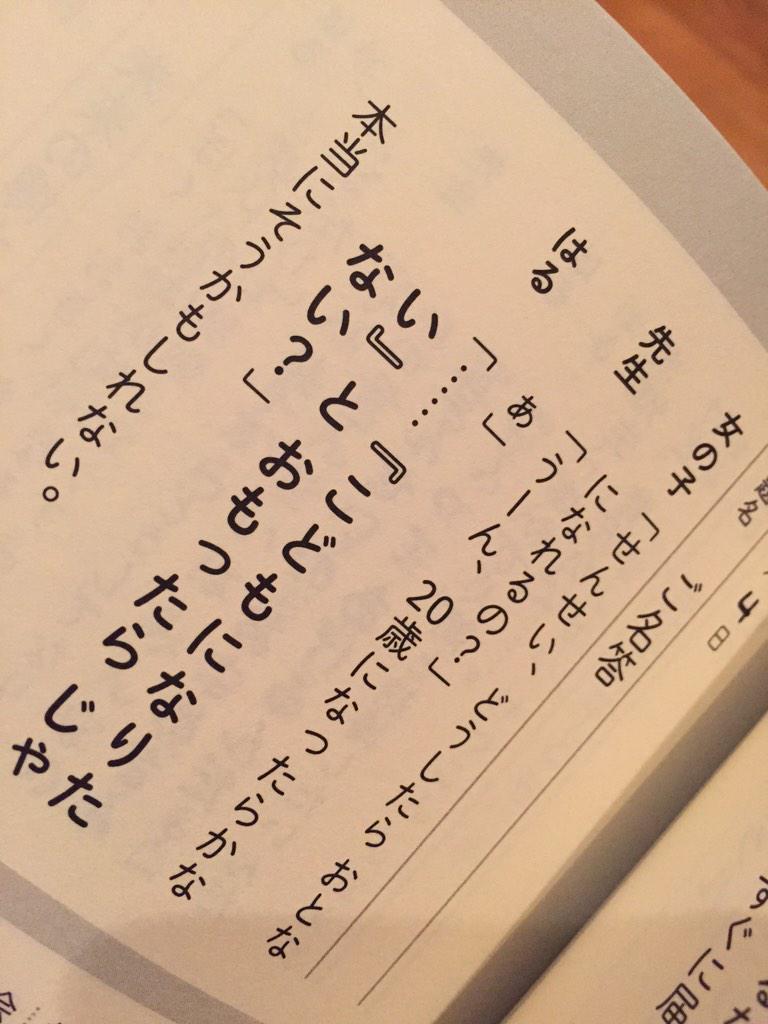 4日
題名 ご名答
女の子 「せんせい、どうしたら おとな
になれるの?」
先生 「うーん、20歳になったらかな
あ」
はる 「……『こどもになりた
い』と おもったらじゃ
ない?」
本当にそうかもしれない。
すぐに届